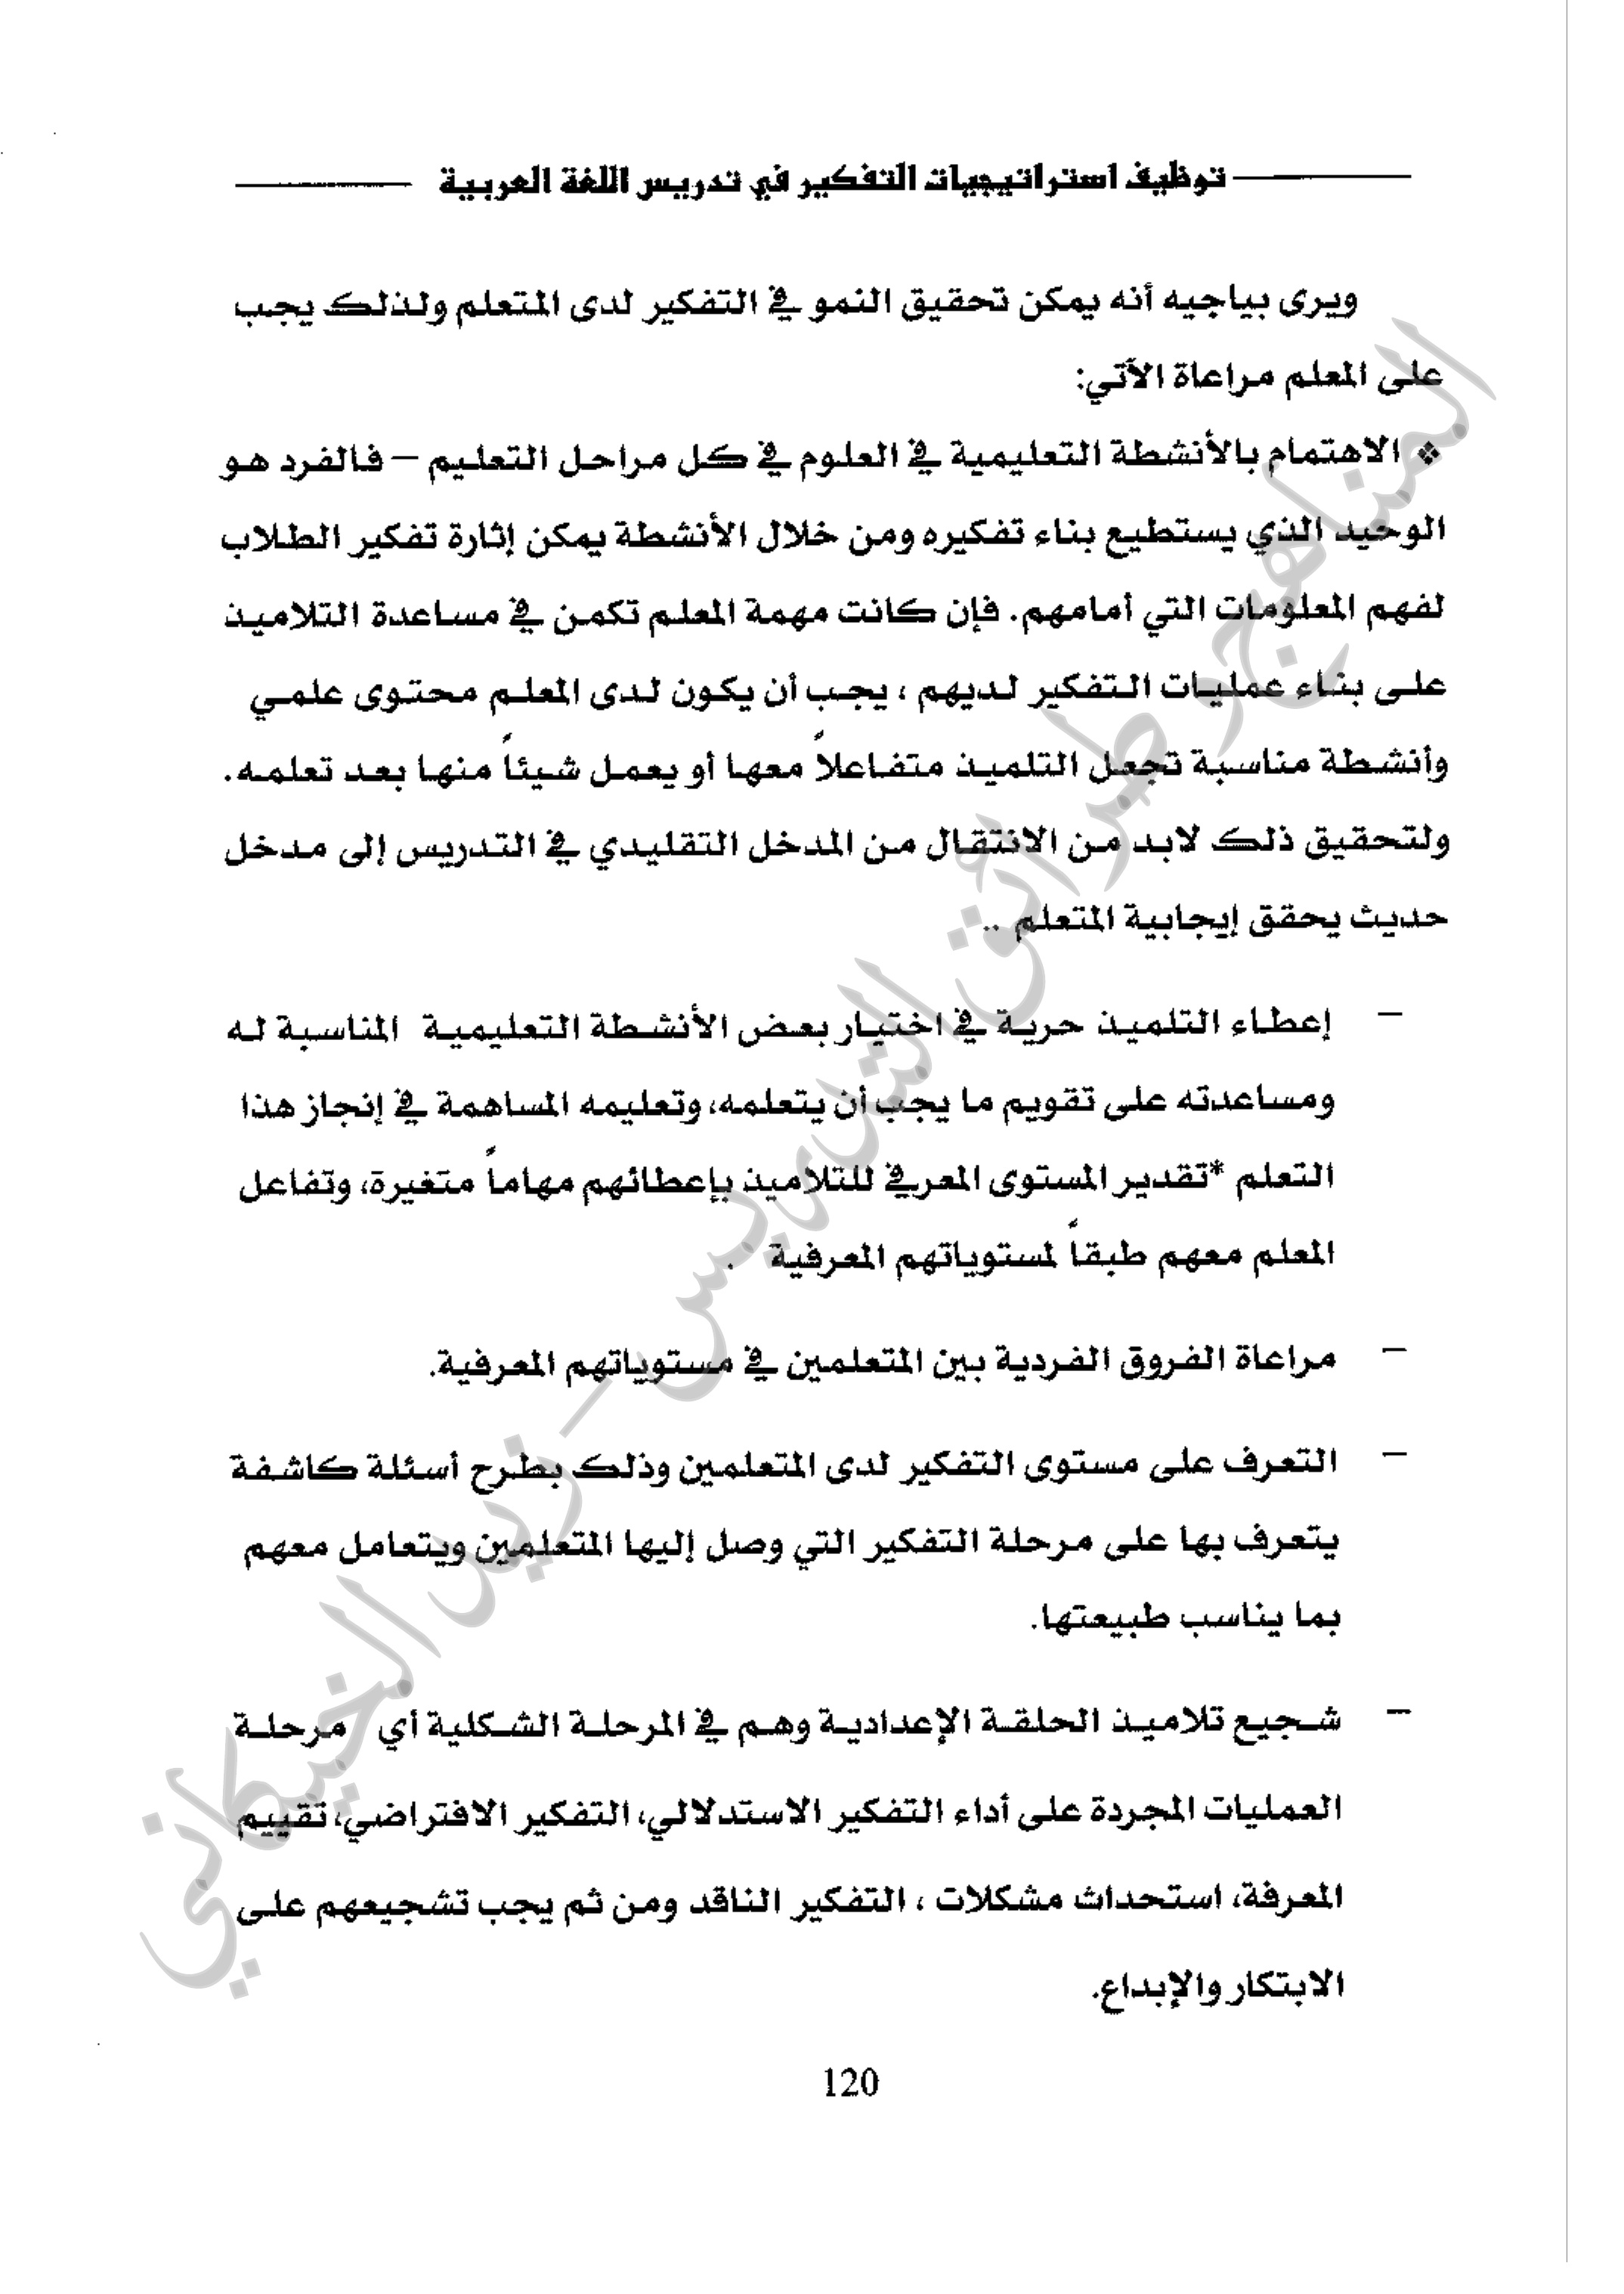 توظيف استراتيجيات التفكير في تدريس اللغة العربية
ويرى بياجيه أنه يمكن تحقيق النمو في التفكير لدى المتعلم ولذلك يجب
على المعلم مراعاة الآتي:
❖ الاهتمام بالأنشطة التعليمية في العلوم في كل مراحل التعليم – فالفرد هو
الوحيد الذي يستطيع بناء تفكيره ومن خلال الأنشطة يمكن إثارة تفكير الطلاب
لفهم المعلومات التي أمامهم. فإن كانت مهمة المعلم تكمن في مساعدة التلاميذ
على بناء عمليات التفكير لديهم ، يجب أن يكون لدى المعلم محتوى علمي
وأنشطة مناسبة تجعل التلميذ متفاعلاً معها أو يعمل شيئاً منها بعد تعلمه.
ولتحقيق ذلك لابد من الانتقال من المدخل التقليدي في التدريس إلى مدخل
حديث يحقق إيجابية المتعلم ..
– إعطاء التلميذ حرية في اختيار بعض الأنشطة التعليمية المناسبة له
ومساعدته على تقويم ما يجب أن يتعلمه، وتعليمه المساهمة في إنجاز هذا
التعلم *تقدير المستوى المعرفي للتلاميذ بإعطائهم مهاماً متغيرة، وتفاعل
المعلم معهم طبقاً لمستوياتهم المعرفية .
– مراعاة الفروق الفردية بين المتعلمين في مستوياتهم المعرفية.
– التعرف على مستوى التفكير لدى المتعلمين وذلك بطرح أسئلة كاشفة
يتعرف بها على مرحلة التفكير التي وصل إليها المتعلمين ويتعامل معهم
بما يناسب طبيعتها.
– شجيع تلاميذ الحلقة الإعدادية وهم في المرحلة الشكلية أي مرحلة
العمليات المجردة على أداء التفكير الاستدلالي، التفكير الافتراضي، تقييم
المعرفة، استحداث مشكلات ، التفكير الناقد ومن ثم يجب تشجيعهم على
الابتكار والإبداع.
120
المناهج وطرائق التدريس - زيد الخيكاني